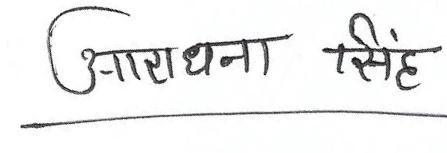 आराधना सिंह